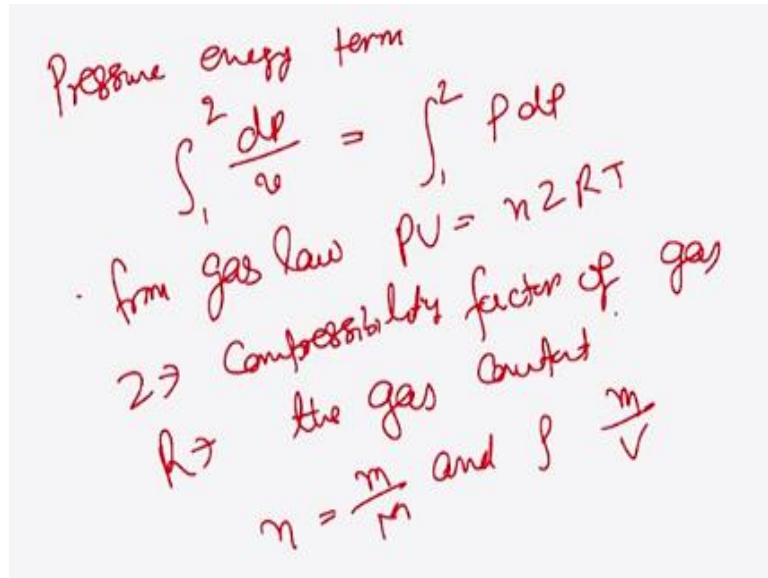 Pressure energy term
∫₁² dP/v = ∫₁² ρ dP
. from gas law PV = nZRT
Z → Compressibility factor of gas
R → the gas constant.
n = m/M and ρ m/V